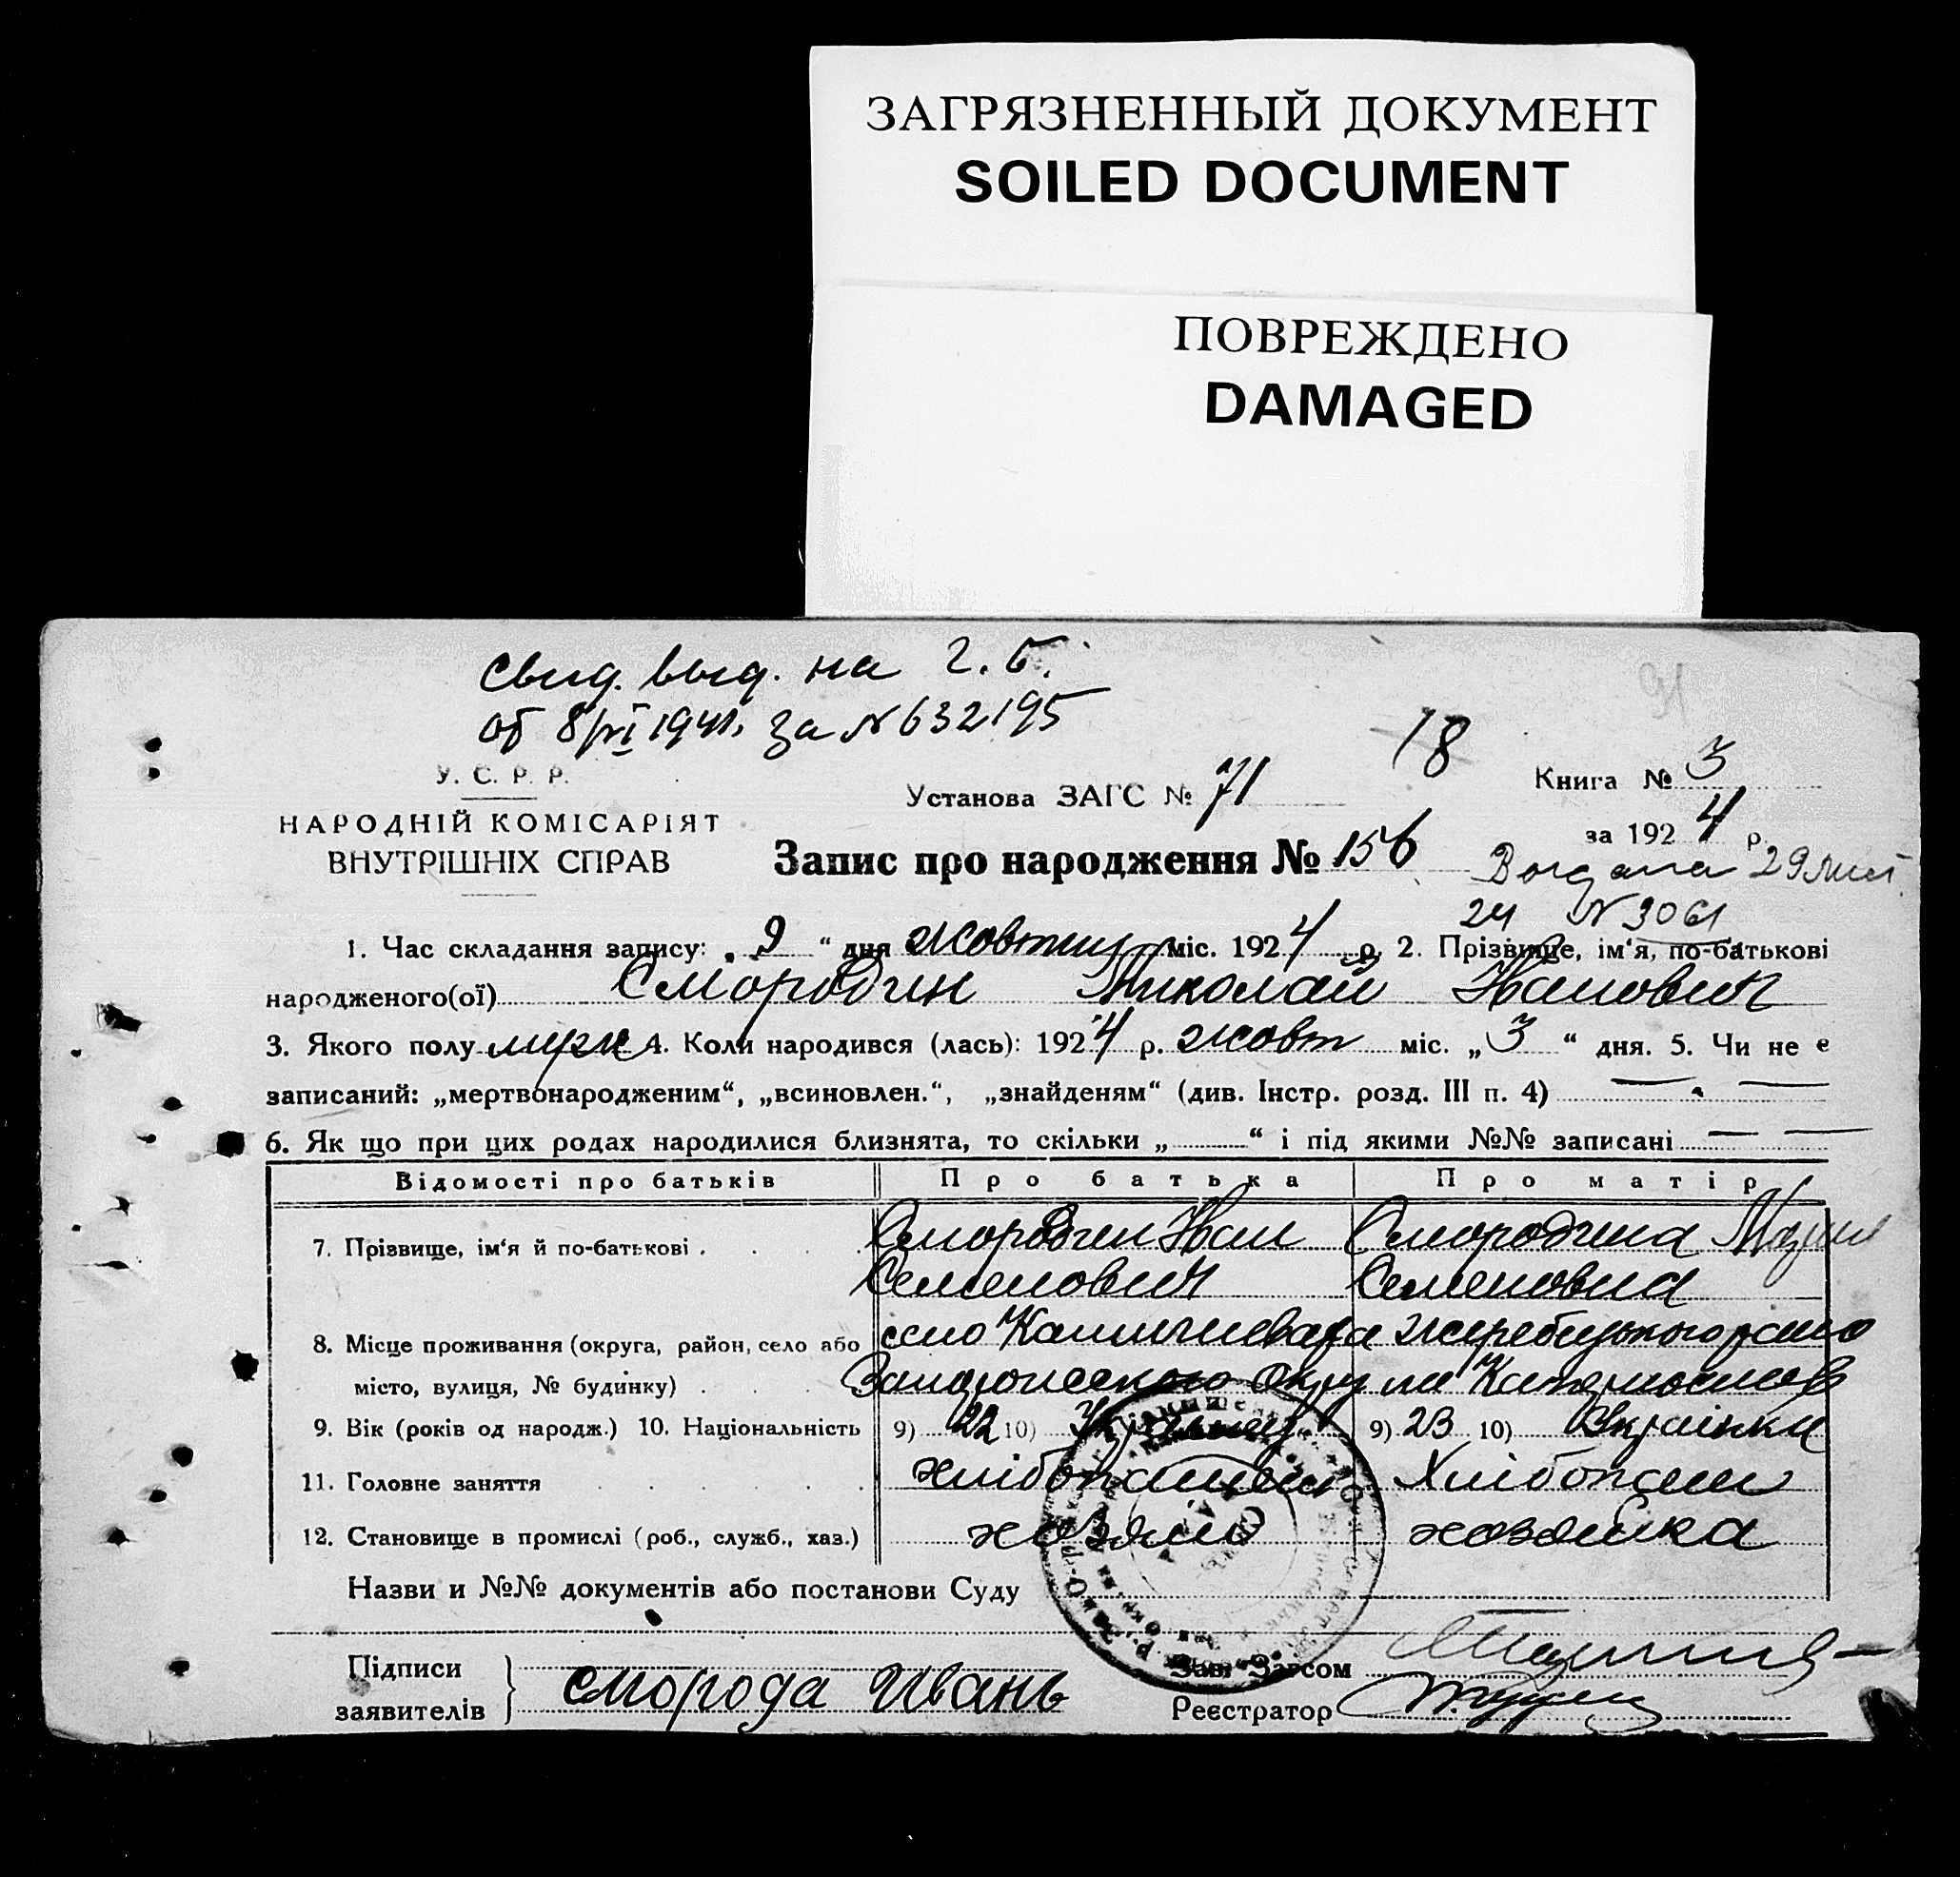 ЗАГРЯЗНЕННЫЙ ДОКУМЕНТ
SOILED DOCUMENT
ПОВРЕЖДЕНО
DAMAGED
Свид. выд. на г. б.
об 8/VI 1941. за N 632195
91
18
У. С. Р. Р.
НАРОДНІЙ КОМІСАРІЯТ
ВНУТРІШНІХ СПРАВ
Установа ЗАГС № 71
Книга № 3
за 1924 р.
Запис про народження № 156
29 лист.
24 N 3061
1. Час складання запису: „ 9 “ дня жовтня міс. 1924 р. 2. Прізвище, ім‘я, по-батькові
народженого(ої) Смородин Николай Иванович
3. Якого полу муж 4. Коли народився (лась): 1924 р. жовт міс. „ 3 “ дня. 5. Чи не є
записаний: „мертвонародженим“, „всиновлен.“, „знайденям“ (див. Інстр. розд. III п. 4) — —
6. Як що при цих родах народилися близнята, то скільки „ “ і під якими №№ записані — —
Відомості про батьків Про батька Про матір
7. Прізвище, ім‘я й по-батькові Смородин Иван Смородина Мария
Семенович Семеновна
8. Місце проживання (округа, район, село або село Камишеваха Жеребецького району
місто, вулиця, № будинку) Запорожського округи Катеринослав
9. Вік (років од народж.) 10. Національність 9) 22 10) Українец 9) 23 10) Українка
11. Головне заняття хлібопашец Хлібопашец
12. Становище в промислі (роб., служб., хаз.) хозяин хозяйка
Назви и №№ документів або постанови Суду
Підписи
заявителів } Сморода Иванъ
Зав. Загсом
Реєстратор